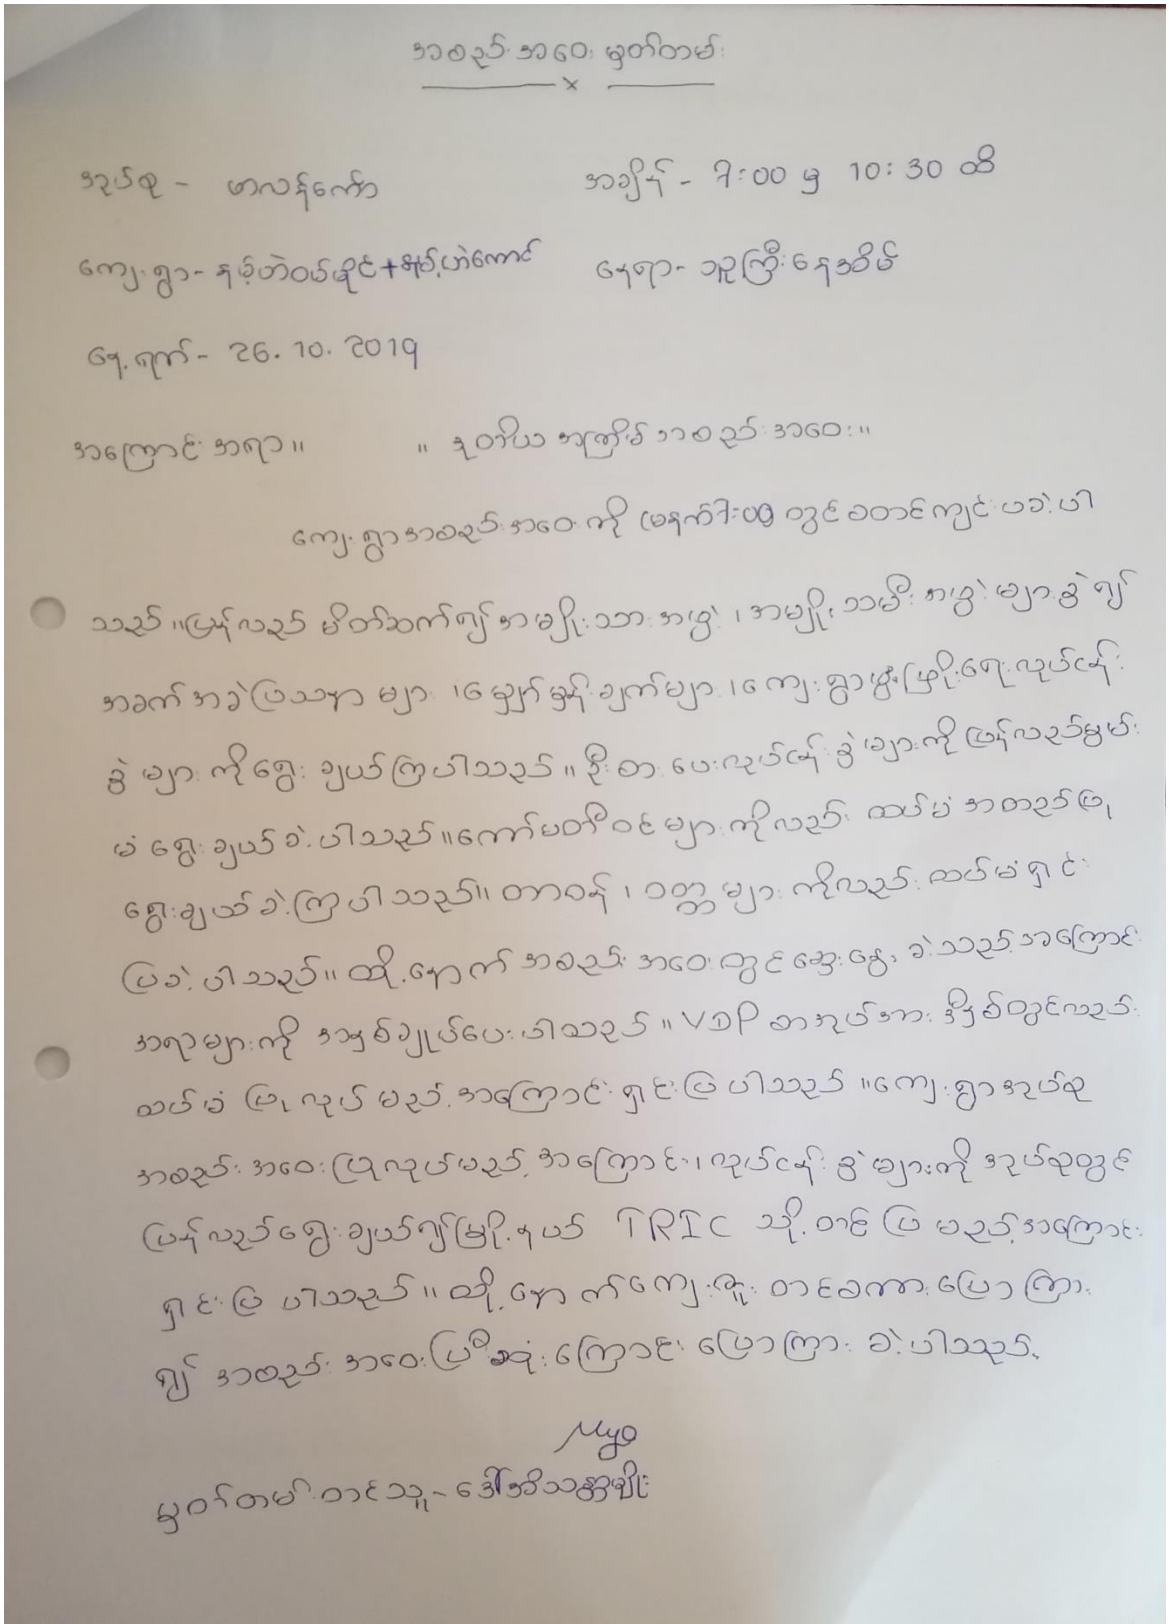 အစည်းအဝေး မှတ်တမ်း
အုပ်စု - ဟာလန်ကော် အချိန် - 7:00 မှ 10:30 ထိ
ကျေးရွာ - နမ့်ဟဲဝမ်နိုင် + နမ့်ဟဲကောင် နေရာ - သူကြီးနေအိမ်
နေ့ရက် - 26.10.2019
အကြောင်းအရာ။ ။ ဒုတိယ အကြိမ် အစည်းအဝေး။
ကျေးရွာအစည်းအဝေးကို မနက် 7:00 တွင် စတင်ကျင်းပခဲ့ပါ
သည်။ ပြန်လည် မိတ်ဆက်၍ အမျိုးသားအဖွဲ့၊ အမျိုးသမီးအဖွဲ့ များခွဲ၍
အခက်အခဲပြဿနာ များ၊ မျှော်မှန်းချက်များ၊ ကျေးရွာဖွံ့ဖြိုးရေးလုပ်ငန်း
ခွဲ များကို ရွေးချယ်ကြပါသည်။ ဦးစားပေးလုပ်ငန်းခွဲများကို ပြန်လည်မွမ်း
မံ ရွေးချယ်ခဲ့ပါသည်။ ကော်မတီဝင်များကိုလည်း ထပ်မံ အတည်ပြု
ရွေးချယ်ခဲ့ကြပါသည်။ တာဝန်၊ ဝတ္တများကိုလည်း ထပ်မံရှင်း
ပြခဲ့ပါသည်။ ထို့နောက် အစည်းအဝေးတွင် ဆွေးနွေးခဲ့သည့် အကြောင်း
အရာများကို အနှစ်ချုပ်ပေးပါသည်။ VDP စာအုပ်အား ဒီနှစ်တွင်လည်း
ထပ်မံ ပြုလုပ်မည့်အကြောင်း ရှင်းပြပါသည်။ ကျေးရွာအုပ်စု
အစည်းအဝေးပြုလုပ်မည့် အကြောင်း၊ လုပ်ငန်းခွဲများကို အုပ်စုတွင်
ပြန်လည်ရွေးချယ်၍ မြို့နယ် TRIC သို့ တင်ပြမည့်အကြောင်း
ရှင်းပြပါသည်။ ထို့နောက် ကျေးဇူးတင်စကားပြောကြား
၍ အစည်းအဝေးပြီးဆုံးကြောင်း ပြောကြားခဲ့ပါသည်။
Myo
မှတ်တမ်းတင်သူ - ဒေါ်အိသန္တာမျိုး